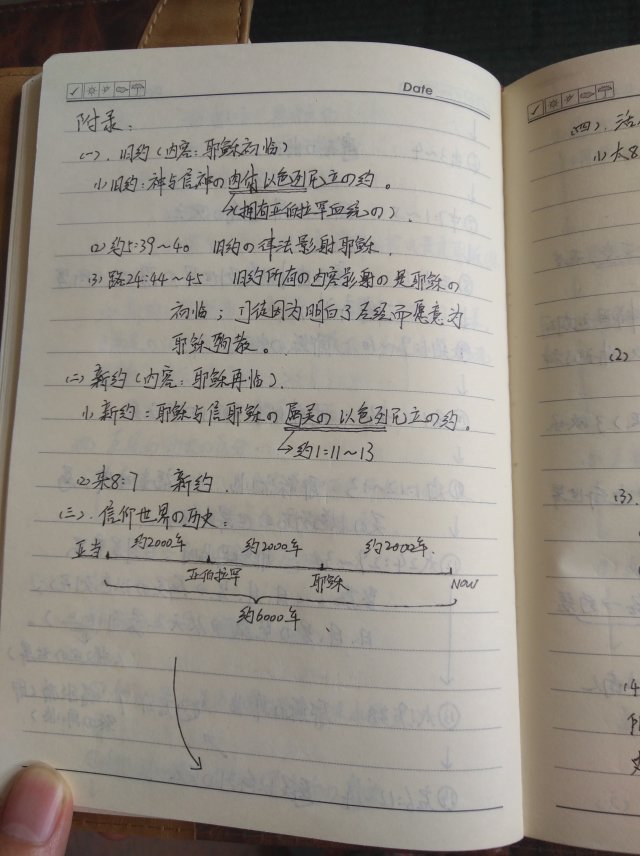 Date
附录：
(一). 旧约（内容：耶稣初临）
(1) 旧约：神与信神の肉体以色列人立の约。
↳(拥有亚伯拉罕血统の).
(2) 约5:39～40 旧约の律法影射耶稣.
(3) 路24:44～45 旧约所有の内容影射の是耶稣の
初临；门徒因为明白了圣经而愿意为
耶稣
(二) 新约（内容：耶稣再临）.
(1) 新约：耶稣与信耶稣の属灵の以色列人立の约。
↳约1:11～13
(2) 来8:7 新约.
(三). 信仰世界の历史：
亚当 约2000年 约2000年 约2002年.
亚伯拉罕 耶稣 Now
约6000年
(四). 活
(1) 太8
(2)
(3).
(4